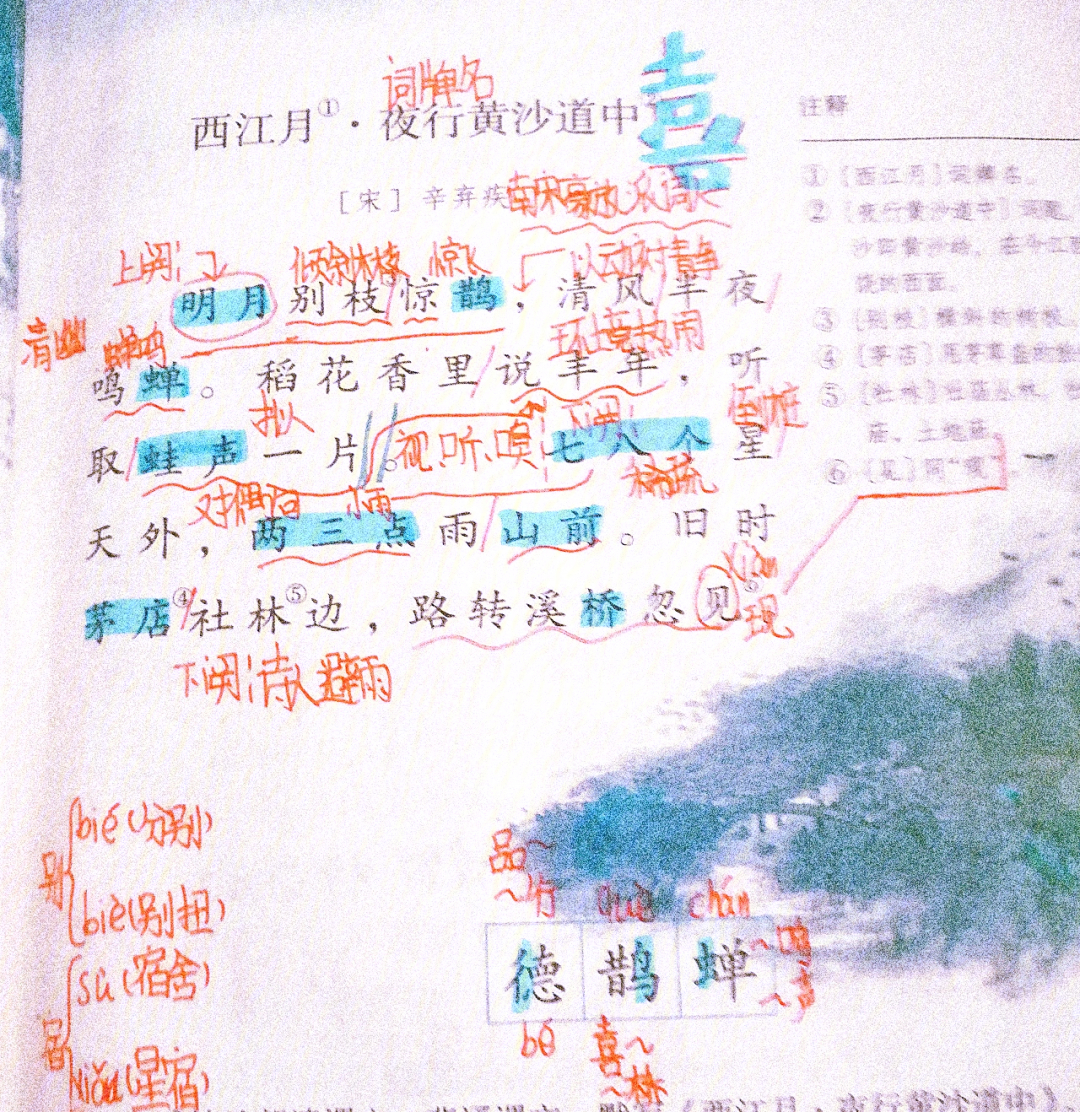 词牌名
西江月①·夜行黄沙道中
喜
注释
[宋] 辛弃疾
南宋豪放派词人
①〔西江月〕词牌名。
②〔夜行黄沙道中〕词题。
上阕:
倾斜树枝 惊飞
以动衬静
明月别枝惊鹊,清风半夜
③〔别枝〕
环境热闹
蝉鸣
鸣蝉。稻花香里说丰年,听
④〔茅店〕
⑤〔社林〕
庙、土地庙
拟人
下阕:
倒装
取蛙声一片。七八个星
视、听、嗅
⑥〔见〕同“现”。
对偶句 小雨
稀疏
天外,两三点雨山前。旧时
xiàn
茅店④社林⑤边,路转溪桥忽见⑥
现
下阕:诗人避雨
别
bié(分别)
biè(别扭)
宿
sù(宿舍)
xiù(星宿)
品~
~行 què chán
德 鹊 蝉
~鸣
~声
dé 喜~
~桥